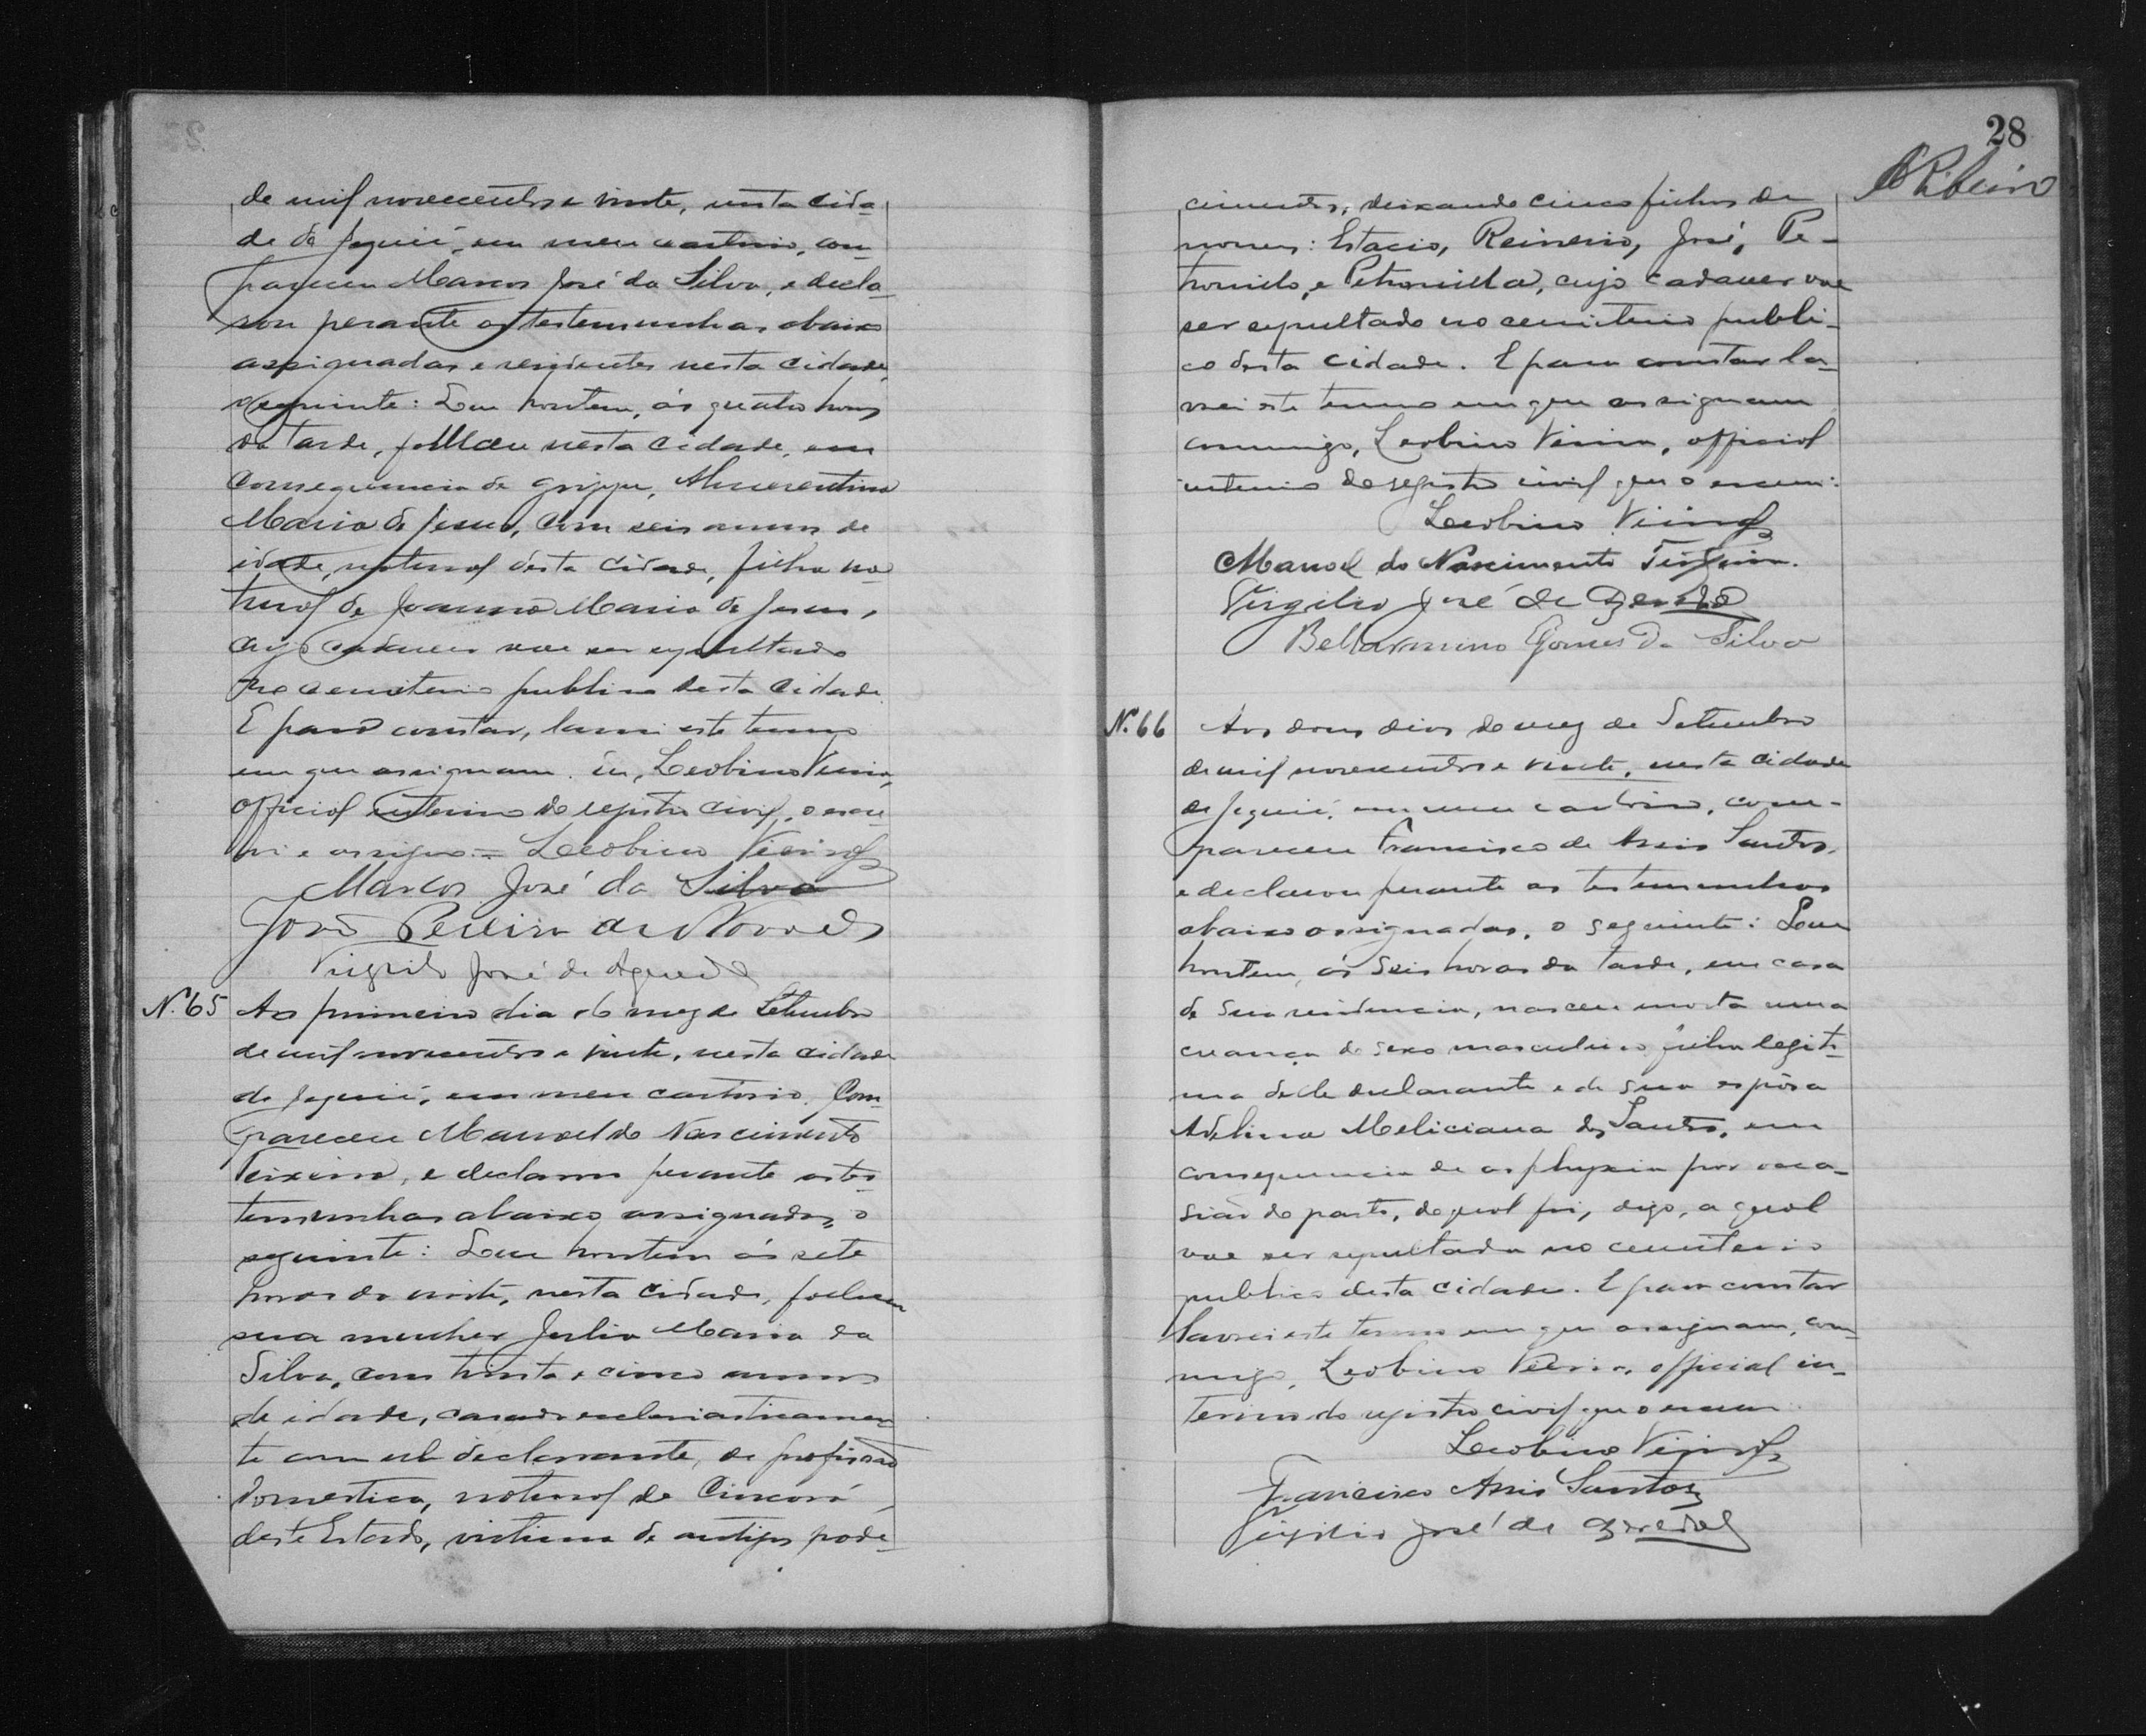 de mil novecentos e vinte, nesta cida-
de de Jequié, em meu cartorio, com-
pareceu Marcos José da Silva, e decla-
rou perante as testemunhas abaixo
assignadas e residentes nesta cidade,
o seguinte: Que hontem, ás quatro horas
da tarde, falleceu nesta cidade, em
consequencia de grippe,
Maria de Jesus, com seis annos de
idade, natural desta cidade, filha na-
tural de Joanna Maria de Jesus,
cujo cadaver vae ser sepultado
no cemiterio publico desta cidade.
E para constar, lavrei este termo
em que assignam. Eu, Leobino Vieira,
official interino do registro civil, o escre-
vi e assigno = Leobino Vieira
Marcos José da Silva
José Pereira de Novaes
Virgilio José de Azevedo
Nº 65 Ao primeiro dia do mez de Setembro
de mil novecentos e vinte, nesta cidade
de Jequié, em meu cartorio, com-
pareceu Manoel do Nascimento
Teixeira, e declarou perante as tes-
temunhas abaixo assignadas, o
seguinte: Que hontem ás sete
horas da noite, nesta cidade, falleceu
sua mulher Julia Maria da
Silva, com trinta e cinco annos
de idade, casada ecclesiasticamen-
te com elle declarante, de profissão
domestica, natural de Sincorá
deste Estado, victima de antigos pade-
28
Ribeiro
cimentos, deixando cinco filhos de
nomes: Estacio, Reinerio, José, Pe-
tronilo, e Petronilla, cujo cadaver vae
ser sepultado no cemiterio publi-
co desta cidade. E para constar la-
vrei este termo em que assignam
commigo, Leobino Vieira, official
interino do registro civil que o escrevi:
Leobino Vieira
Manoel do Nascimento Teixeira.
Virgilio José de Azevedo
Bellarmino Gomes da Silva
Nº 66 Aos dous dias do mez de Setembro
de mil novecentos e vinte, nesta cidade
de Jequié, em meu cartorio, com-
pareceu Francisco de Assis Santos,
e declarou perante as testemunhas
abaixo assignadas, o seguinte: Que
hontem, ás seis horas da tarde, em casa
de sua residencia, nasceu morta uma
creança do sexo masculino, filha legiti-
ma delle declarante e de sua espôsa
Adelina Meliciana dos Santos, em
consequencia de asphyxia por occa-
sião do parto, do qual foi, digo, a qual
vae ser sepultada no cemiterio
publico desta cidade. E para constar
lavrei este termo em que assignam, com-
migo, Leobino Vieira, official in-
terino do registro civil que o escrevi.
Leobino Vieira
Francisco Assis Santos
Virgilio José de Azevedo